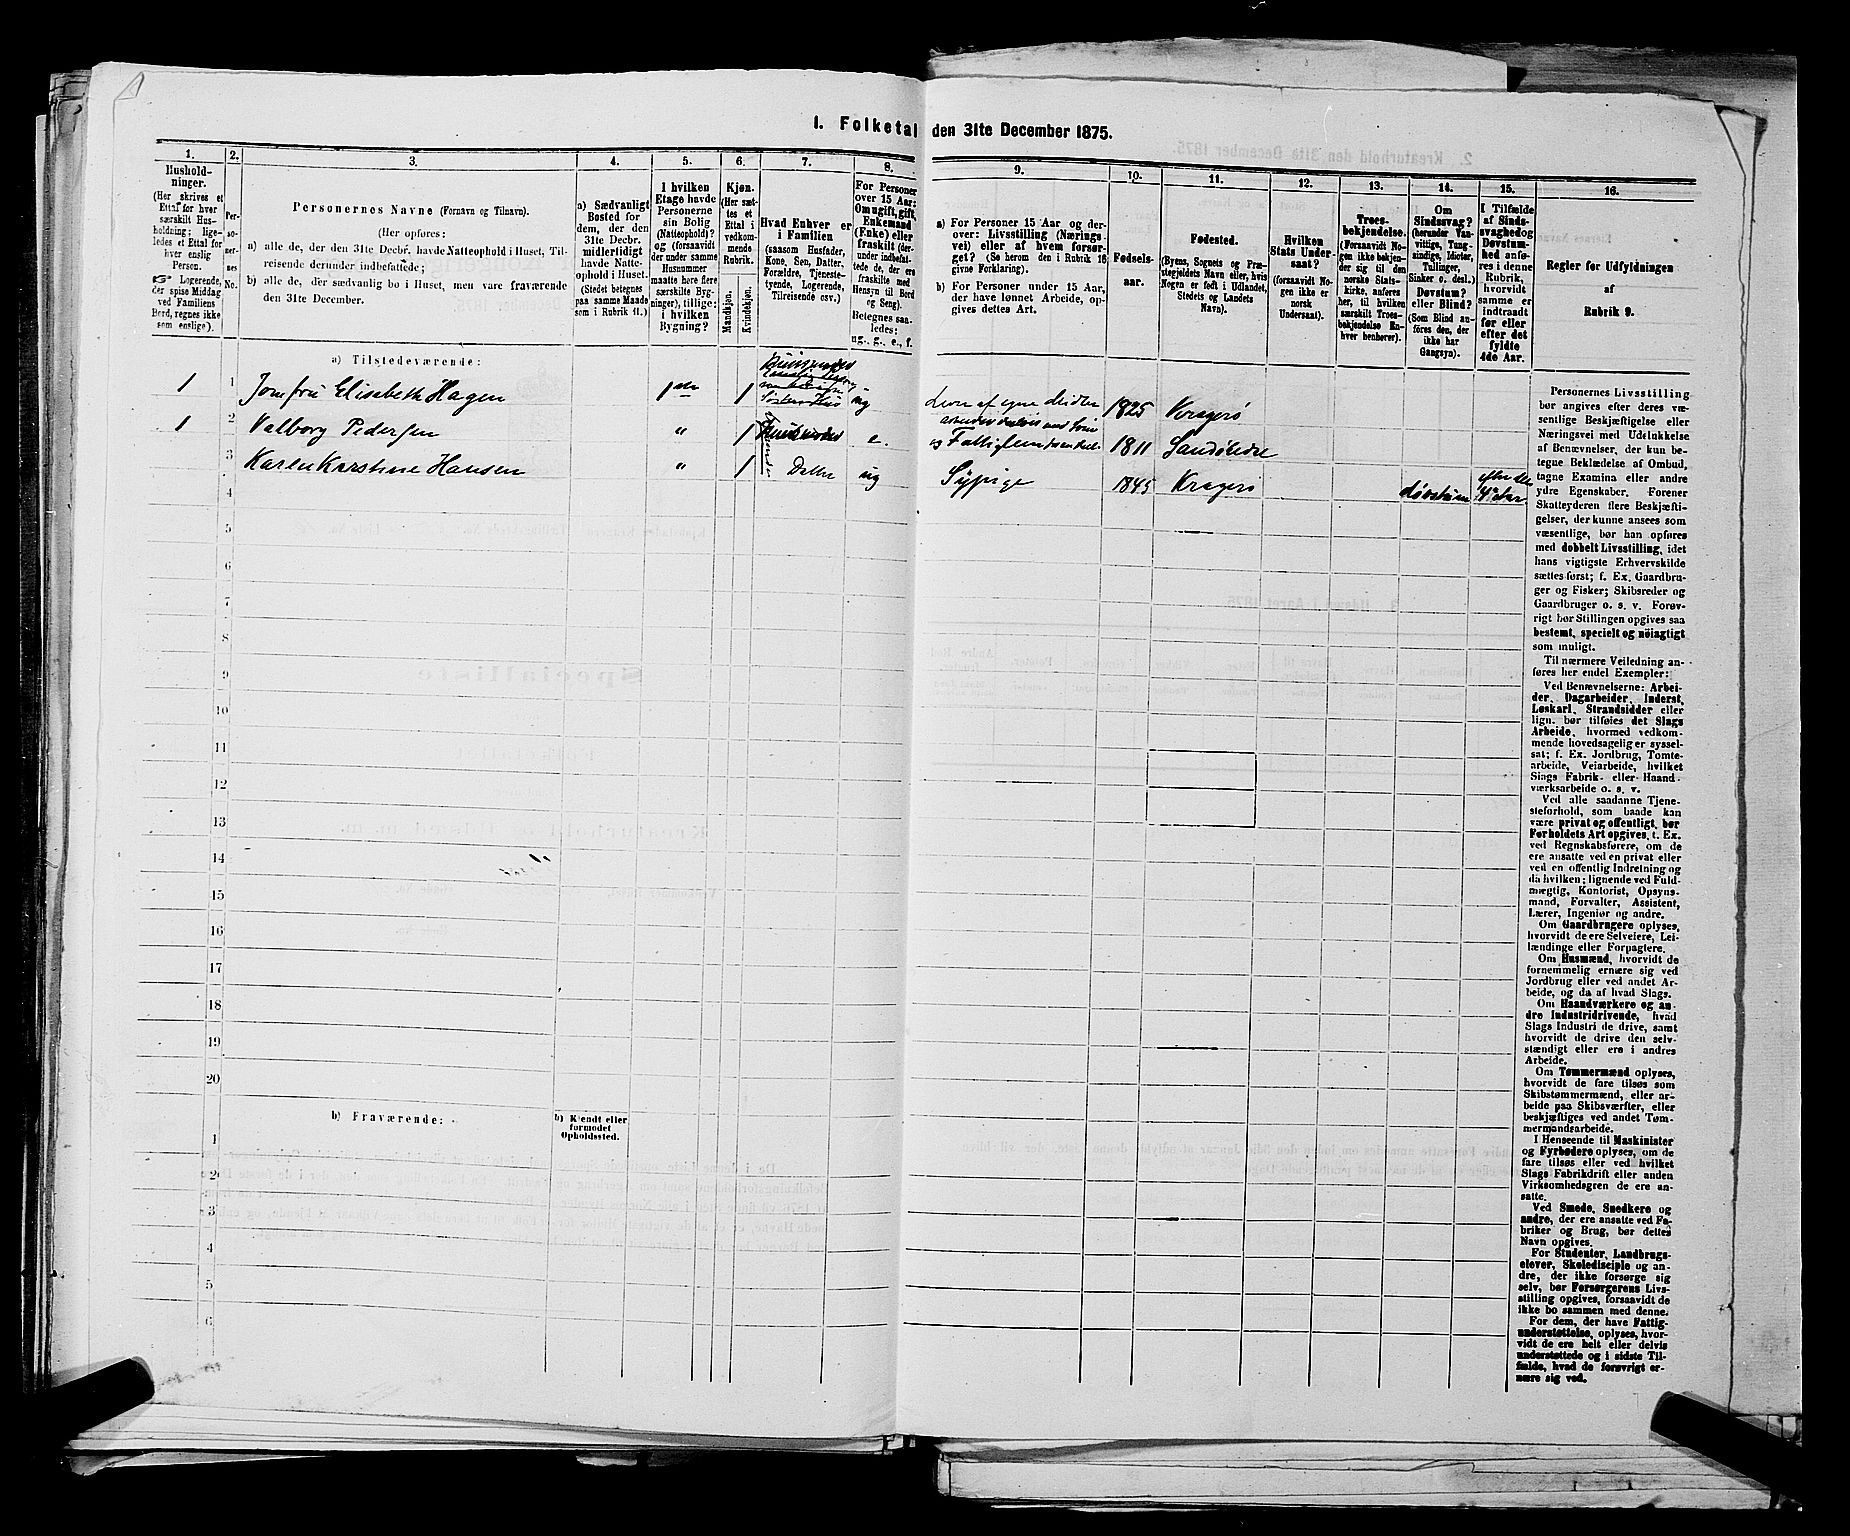 1. Folketal den 31te December 1875.
1.
Hushold-
ninger.
(Her skrives et
Ettal for hver
særskilt Hus-
holdning; lige-
ledes et Ettal for
hver enslig
Person.
Logerende,
der spise Middag
ved Familiens
Bord, regnes ikke
som enslige).
2.
Per-
so-
ner-
nes
No.
3.
Personernes Navne (Fornavn og Tilnavn).
(Her opføres:
a) alle de, der den 31te Decbr. havde Natteophold i Huset, Til-
reisende derunder indbefattede;
b) alle de, der sædvanlig bo i Huset, men vare fraværende
den 31te December.
4.
a) Sædvanligt
Bosted for
dem, der den
31te Decbr.
midlertidigt
havde Natte-
ophold i Huset.
(Stedet betegnes
paa samme Maade
som i Rubrik 11.)
5.
I hvilken
Etage havde
Personerne
sin Bolig
(Natteophold)?
og (forsaavidt
der under samme
Husnummer
maatte høre flere
særskilte Byg-
ninger), tillige:
i hvilken
Bygning?
6.
Kjøn.
(Her sæt-
tes et
Ettal i
vedkom-
mende
Rubrik.
Mandkjøn.
Kvindekjøn.
7.
Hvad Enhver er
i Familien
(saasom Husfader,
Kone, Søn, Datter,
Forældre, Tjeneste-
tyende, Logerende,
Tilreisende osv.)
8.
For Personer
over 15 Aar:
Om ugift, gift,
Enkemand
(Enke) eller
fraskilt (der-
under indbefat-
tede de, der ere
fraskilte med
Hensyn til Bord
og Seng).
Betegnes saa-
ledes:
ug., g., e., f.
9.
a) For Personer 15 Aar og der-
over: Livsstilling (Nærings-
vei) eller af hvem forsør-
get? (Se herom den i Rubrik 16
givne Forklaring).
b) For Personer under 15 Aar,
der have lønnet Arbeide, op-
gives dettes Art.
10.
Fødsels-
aar.
11.
Fødested.
(Byens, Sognets og Præ-
stegjeldets Navn eller, hvis
Nogen er født i Udlandet,
Stedets og Landets
Navn).
12.
Hvilken
Stats Under-
saat?
(forsaavidt No-
gen ikke er
norsk
Undersaat).
13.
Troes-
bekjendelse.
(Forsaavidt No-
gen ikke bekjen-
der sig til den
norske Stats-
kirke, anføres
her, til hvilken
særskilt Troes-
bekjendelse En-
hver henhører).
14.
Om
Sindssvag?
(herunder Van-
vittige, Tung-
sindige, Idioter,
Tullinger,
Sinker o. desl.)
Døvstum?
eller Blind?
(Som Blind an-
føres den, der
ikke har
Gangsyn).
15.
I Tilfælde
af Sinds-
svaghed og
Døvstum-
hed anfø-
res i denne
Rubrik,
hvorvidt
samme er
indtraadt
før eller
efter det
fyldte
4de Aar.
16.
Regler for Udfyldningen
af
Rubrik 9.
a) Tilstedeværende:
1 1 Jomfru Elisabeth Hagen 1 1 ug 1825 Kragerø
1 2 Valborg Pedersen " 1 e. 1811
3 Karen Kirstine Hansen " 1 Datter ug Sypige 1845 Kragerø døvstum
4
5
6
7
8
9
10
11
12
13
14
15
16
17
18
19
20
b) Fraværende:
b) Kjendt eller
formodet
Opholdssted.
1
2
3
4
5
6
Personernes Livsstilling
bør angives efter deres væ-
sentlige Beskjæftigelse eller
Næringsvei med Udelukkelse
af Benævnelser, der kun be-
tegne Beklædelse af Ombud,
tagne Examina eller andre
ydre Egenskaber. Forener
Skatteyderen flere Beskjæfti-
gelser, der kunne ansees som
væsentlige, bør han opføres
med dobbelt Livsstilling, idet
hans vigtigste Erhvervskilde
sættes først; f. Ex. Gaardbru-
ger og Fisker; Skibsreder og
Gaardbruger o. s. v. Forøv-
rigt bør Stillingen opgives saa
bestemt, specielt og nöiagtigt
som muligt.
Til nærmere Veiledning an-
føres her endel Exempler:
Ved Benævnelserne: Arbei-
der, Dagarbeider, Inderst,
Løskarl, Strandsidder eller
lign. bør tilføies det Slags
Arbeide, hvormed vedkom-
mende hovedsagelig er syssel-
sat; f. Ex. Jordbrug, Tomte-
arbeide, Veiarbeide, hvilket
Slags Fabrik- eller Haand-
værksarbeide o. s. v.
Ved alle saadanne Tjene-
steforhold, som baade kan
være privat og offentligt, bør
Forholdets Art opgives, t. Ex.
ved Regnskabsførere, om de
ere ansatte ved en privat eller
ved en offentlig Indretning og
da hvilken; lignende ved Fuld-
mægtig, Kontorist, Opsyns-
mand, Forvalter, Assistent,
Lærer, Ingeniør og andre.
Om Gaardbrugere oplyses,
hvorvidt de ere Selveiere, Lei-
lændinge eller Forpagtere.
Om Husmænd, hvorvidt de
fornemmelig ernære sig ved
Jordbrug eller ved andet Ar-
beide, og da af hvad Slags.
Om Haandværkere og an-
dre Industridrivende, hvad
Slags Industri de drive, samt
hvorvidt de drive den selv-
stændigt eller ere i andres
Arbeide.
Om Tømmermænd oplyses,
hvorvidt de fare tilsøs som
Skibstømmermænd, eller ar-
beide paa Skibsværfter, eller
beskjæftiges ved andet Tøm-
mermandsarbeide.
I Henseende til Maskinister
og Fyrbødere oplyses, om de
fare tilsøs eller ved hvilket
Slags Fabrikdrift eller anden
Virksomhedsgren de ere an-
satte.
Ved Smede, Snedkere og
andre, der ere ansatte ved Fa-
briker og Brug, bør dettes
Navn opgives.
For Studenter, Landbrugs-
elever, Skoledisciple og an-
dre, der ikke forsørge sig
selv, bør Forsørgerens Livs-
stilling opgives, forsaavidt de
ikke bo sammen med denne.
For dem, der have Fattig-
understøttelse, oplyses, hvor-
vidt de ere helt eller delvis
understøttede og i sidste Til-
fælde, hvad de forøvrigt er-
nære sig ved.